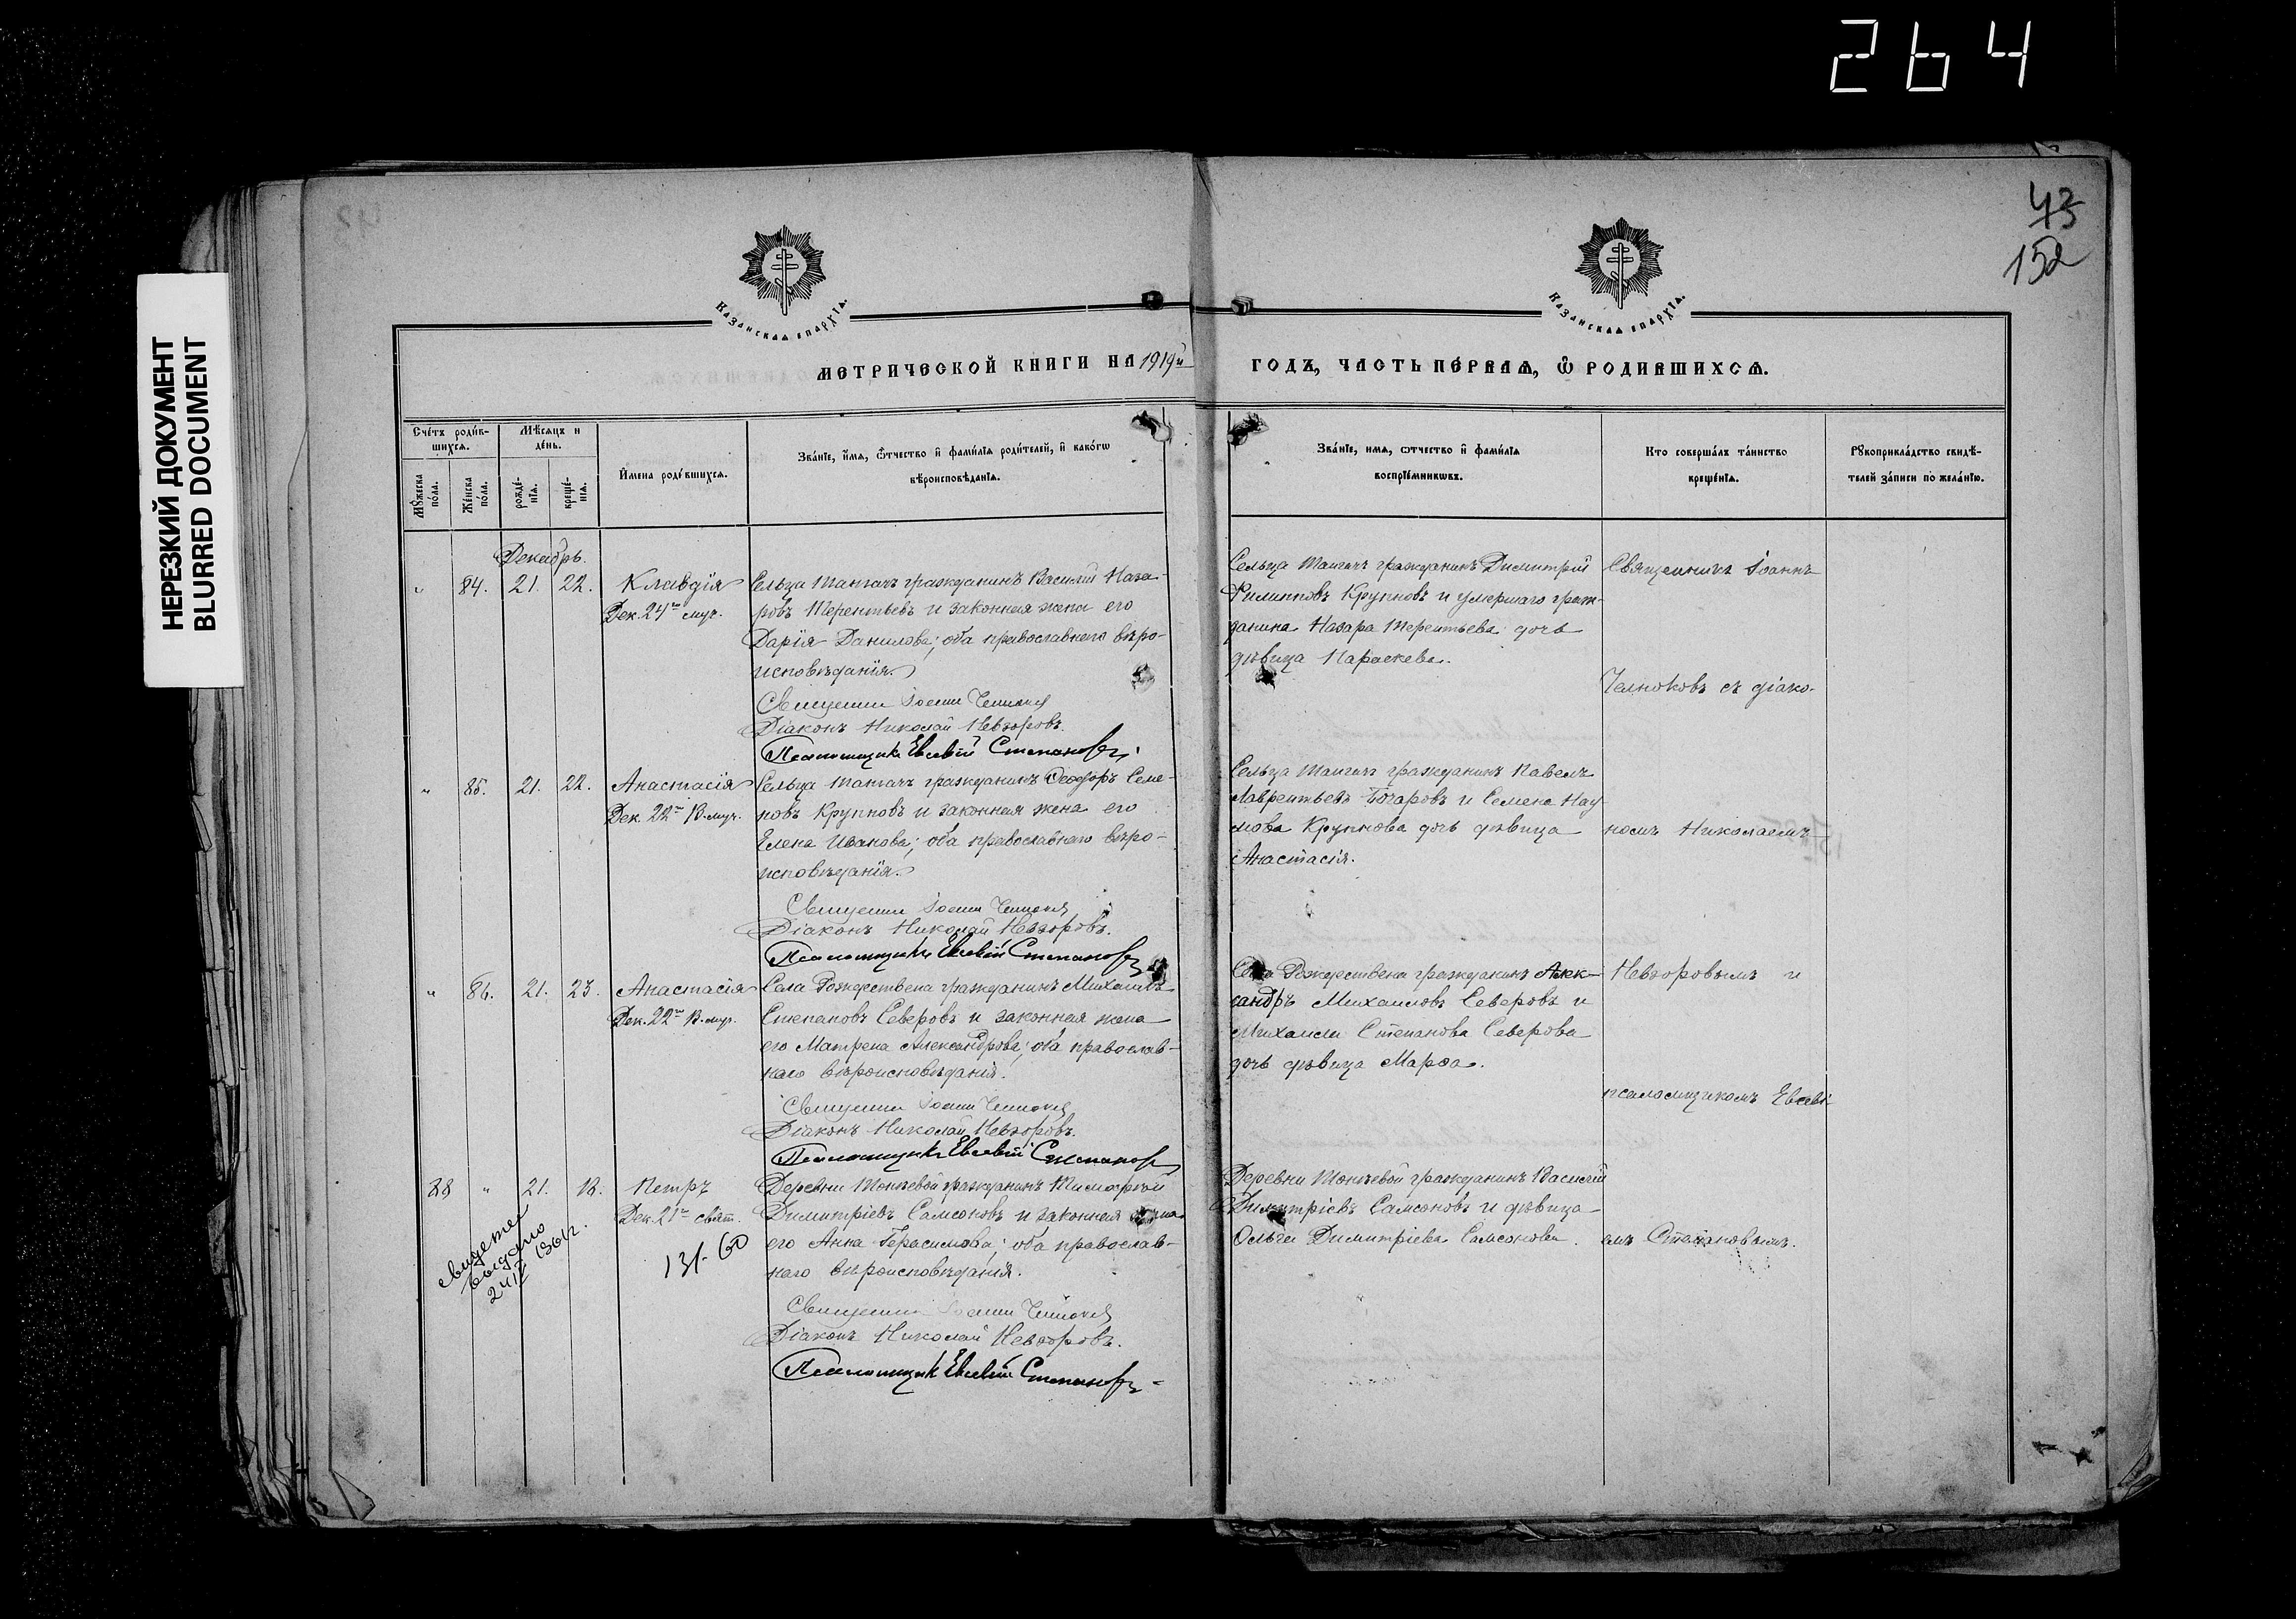 264
НЕРЕЗКИЙ ДОКУМЕНТ
BLURRED DOCUMENT
43
152
Казанская епархїѧ.
Казанская епархїѧ.
МЕТРИЧЕСКОЙ КНИГИ НА 1919й ГОДЪ, ЧАСТЬ ПЕРВАѦ, Ѿ РОДИВШИХСѦ.
Сче́тъ роди́вшихсѧ.
Мѣ́сѧцъ и де́нь.
Мꙋ́жеска по́ла.
Же́нска по́ла.
рожде́нїѧ.
креще́нїѧ.
И҆мена роди́вшихсѧ.
Зва́нїе, и҆́мѧ, ѻ҆́тчество и҆ фами́лїѧ роди́телей, и҆ како́гѡ
вѣроисповѣ́данїѧ.
Зва́нїе, имѧ, ѻтчество и҆ фами́лїѧ
воспрїе́мникѡвъ.
Кто соверша́лъ та́инство
креще́нїѧ.
Рꙋкоприкла́дство свидѣ́-
телей за́писи по жела́нїю.
Декабрь.
" 84. 21. 22. Клавдія
Дек. 24го муч.
Сельца Танчачъ гражданинъ Василій Наза-
ровъ Терентьевъ и законная жена его
Дарія Данилова; оба православнаго вѣро-
исповѣданія.
Священникъ Іоаннъ Челноковъ
Діаконъ Николай Невзоровъ.
Псаломщикъ Евсевій Степановъ.
Сельца гражданинъ Димитрій
Филипповъ Крупновъ и умершаго граж-
данина Назара Терентьева дочь
дѣвица Параскева.
Священникъ Іоаннъ
Челноковъ съ діако-
" 85. 21. 22. Анастасія
Дек. 22го В.-муч.
Сельца гражданинъ Ѳеодоръ Семе-
новъ Крупновъ и законная жена его
Елена Иванова; оба православнаго вѣро-
исповѣданія.
Священникъ Іоаннъ Челноковъ
Діаконъ Николай Невзоровъ.
Псаломщикъ Евсевій Степановъ
Сельца гражданинъ Павелъ
Лаврентьевъ Бочаровъ и Семена Нау
мова Крупнова дочь дѣвица
Анастасія.
номъ Николаемъ
" 86. 21. 23. Анастасія
Дек. 22го В.-муч.
Села Рождествена гражданинъ Михаилъ
Степановъ Северовъ и законная жена
его Матрена Александрова; оба православ-
наго вѣроисповѣданія.
Священникъ Іоаннъ Челноковъ
Діаконъ Николай Невзоровъ.
Псаломщикъ Евсевій Степановъ
Села Рождествена гражданинъ Алек-
сандръ Михаиловъ Северовъ и
Михаила Степанова Северова
дочь дѣвица Марѳа.
Невзоровымъ и
псаломщикомъ Евсеві-
88 " 21. Петръ
Дек. 21го свят.
131-60
Деревни гражданинъ Тимоѳей
Димитріевъ Самсоновъ и законная жена
его Анна Герасимова; оба православ-
наго вѣроисповѣданія.
Священникъ Іоаннъ Челноковъ
Діаконъ Николай Невзоровъ.
Псаломщикъ Евсевій Степановъ
Деревни гражданинъ Василій
Димитріевъ Самсоновъ и дѣвица
Ольга Димитріева Самсонова.
емъ Степановымъ.
выдано